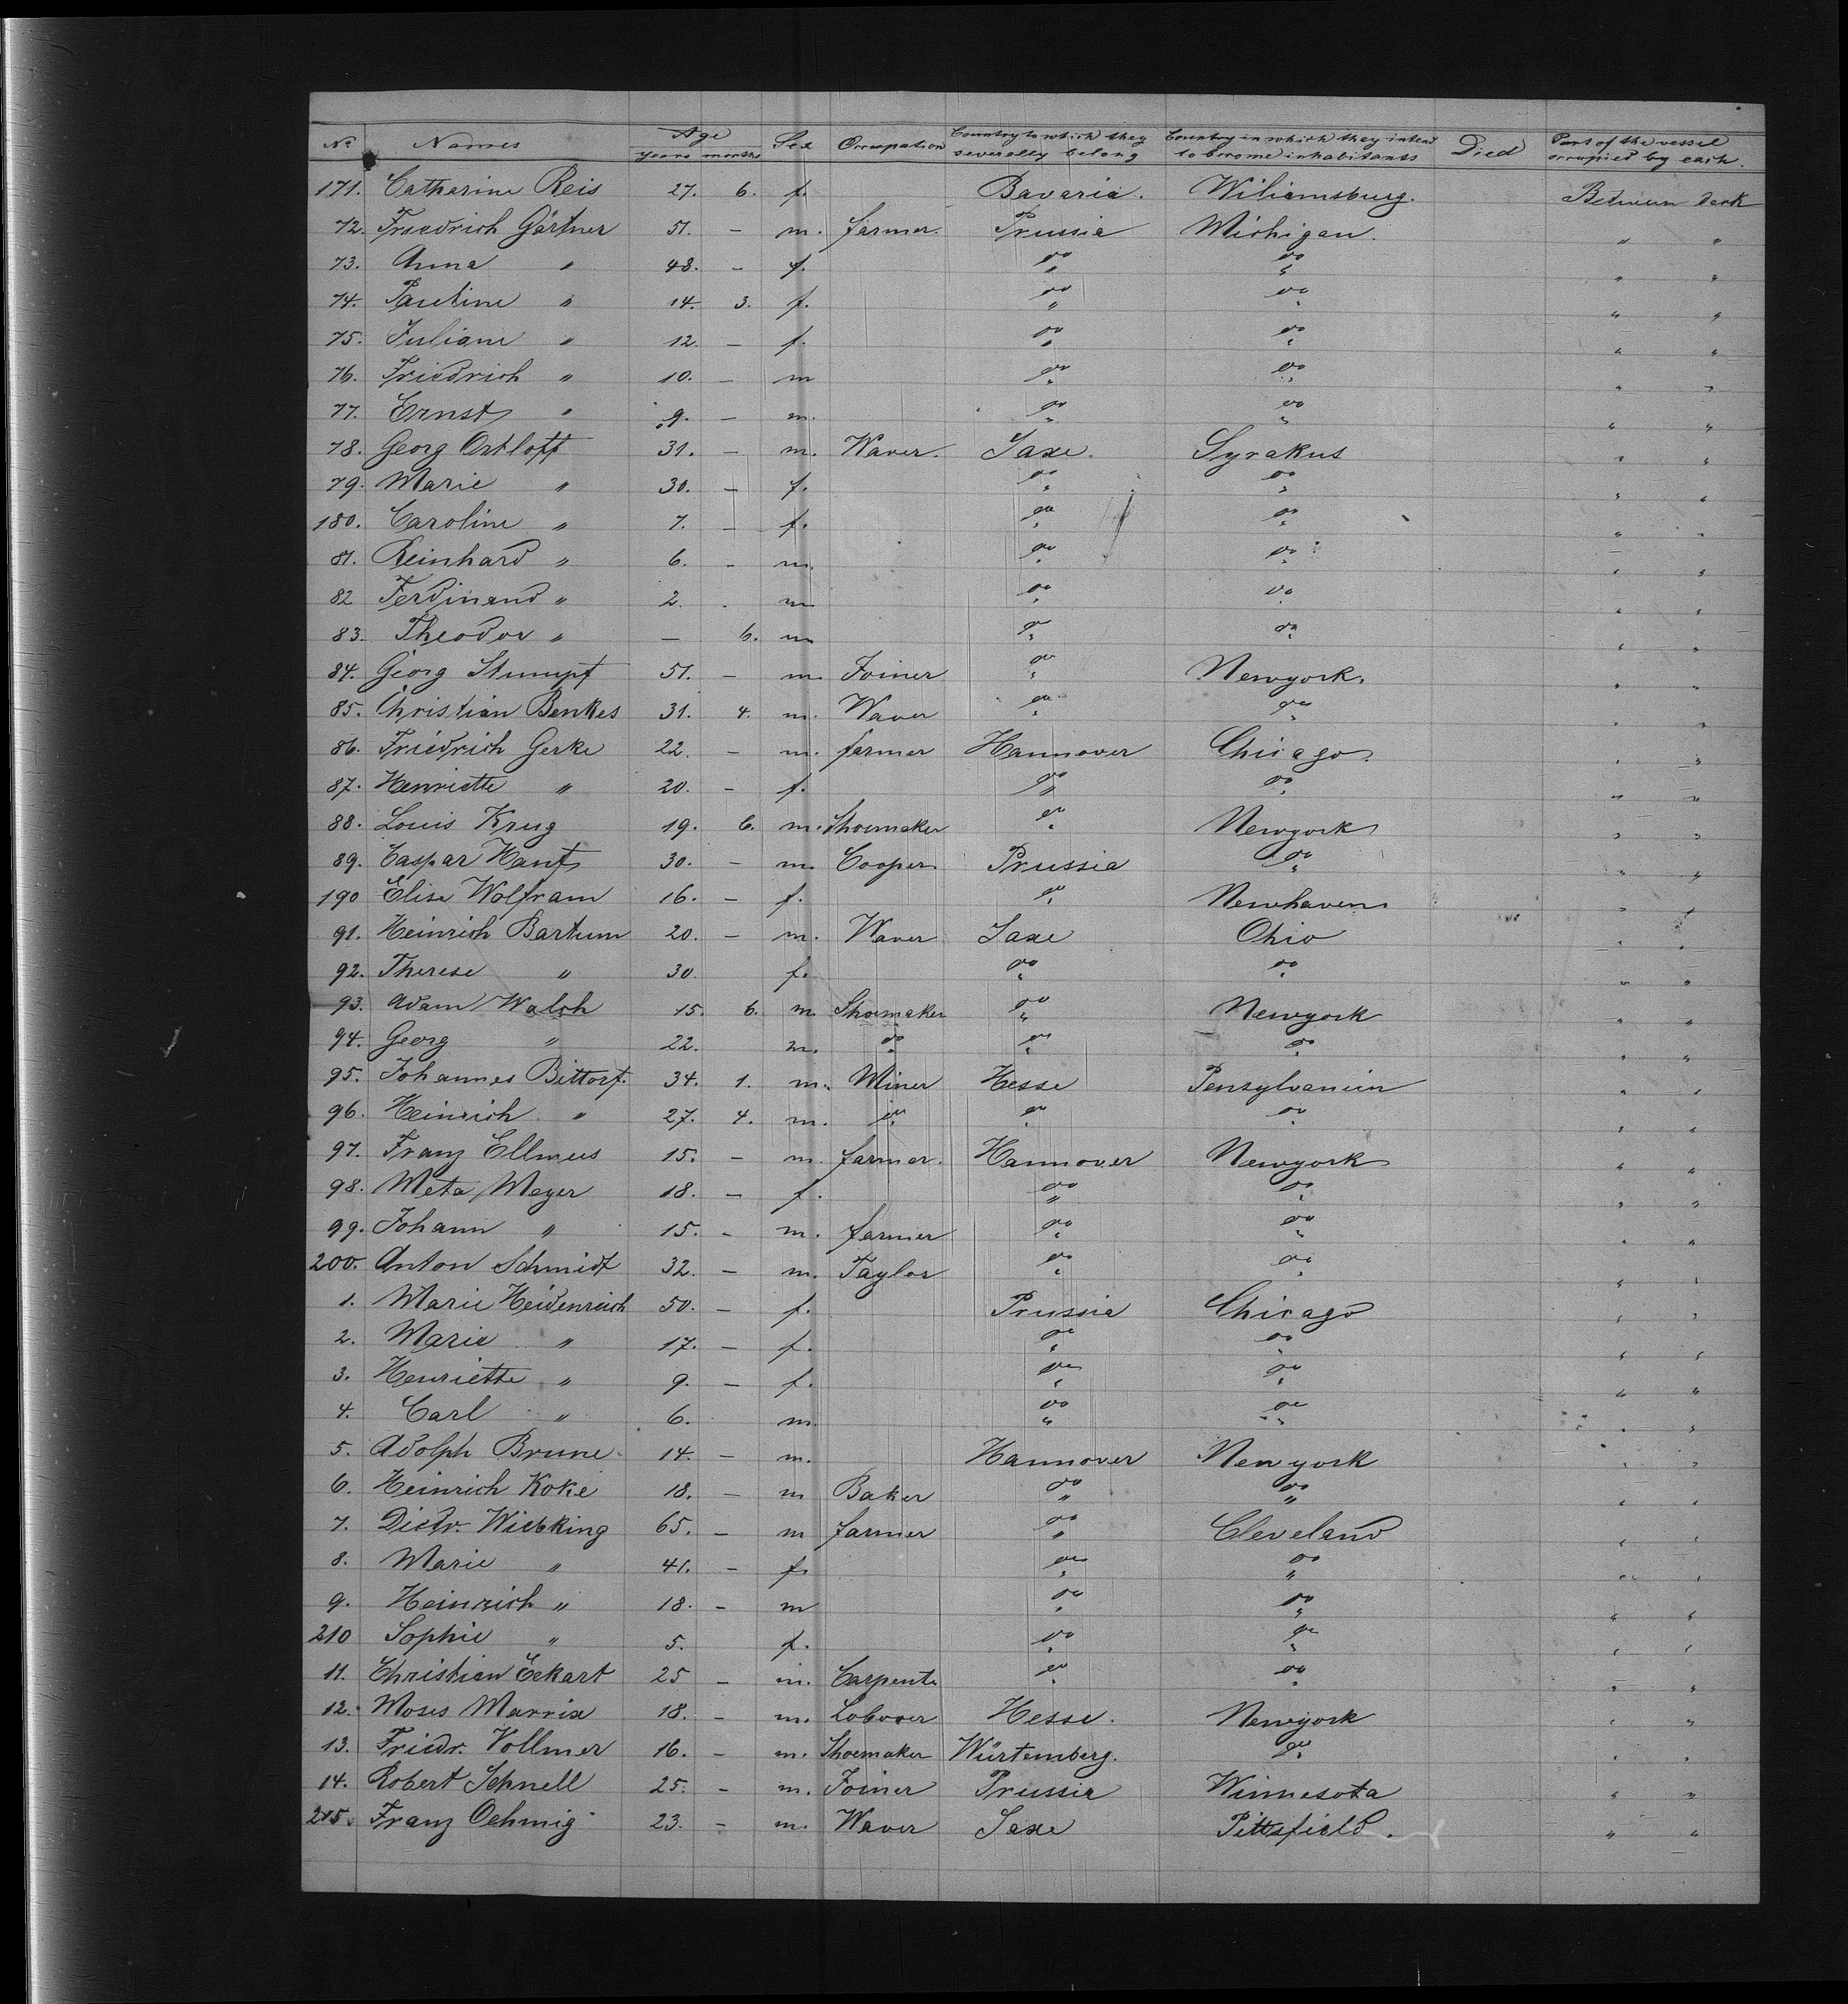 No Names Age years months Sex Occupation Country to which they severally belong Country in which they intend to become inhabitants Died Part of the vessel occupied by each.
171. Catherine Reis 27. 6. f. Bavaria. Wiliamsburg. Between deck
72. Friedrich Gärtner 51. - m. farmer. Prussia Michigan. " "
73. Anna " 48. - f. do do " "
74. Pauline " 14. 3. f. do do " "
75. Juliane " 12. - f. do do " "
76. Friedrich " 10. - m do do " "
77. Ernst " 9. - m. do do " "
78. Georg Ortloff 31. - m. Waver. Saxe. Syrakus " "
79. Marie " 30. - f. do do " "
180. Caroline " 7. - f. do do " "
81. Reinhard " 6. - m. do do " "
82 Ferdinand " 2. - m do do " "
83. Theodor " - 6. m do do " "
84. Georg Stumpf 51. - m. Joiner do Newyork. " "
85. Christian Benkes 31. 4. m. Waver do do " "
86. Friedrich Gerke 22. - m. farmer Hannover Chicago. " "
87. Henriette " 20. - f. do do " "
88. Louis Krug 19. 6. m. Shoemaker do Newyork " "
89. Caspar Hanf 30. - m. Cooper Prussia do " "
190 Elise Wolfram 16. - f. do Newhaven " "
91. Heinrich Bartum 20. - m. Waver Saxe Ohio " "
92. Therese " 30. f. do do " "
93. Adam Walch 15. 6. m. Shoemaker do Newyork " "
94. Georg " 22. m. do do do " "
95. Johannes Bittorf. 34. 1. m. Miner Hesse Pensylvanien " "
96. Heinrich " 27. 4. m. do do do " "
97. Franz Ellmers 15. - m. farmer. Hannover Newyork " "
98. Meta Meyer 18. - f. do do " "
99. Johann " 15. - m. farmer do do " "
200. Anton Schmidt 32. - m. Taylor do do " "
1. Marie Heidenreich 50. - f. Prussia Chicago " "
2. Marie " 17. - f. do do " "
3. Henriette " 9. - f. do do " "
4. Carl " 6. m. do do " "
5. Adolph Brune 14. - m. Hannover New york " "
6. Heinrich Koke 18. - m Baker do do " "
7. Diedr. Wiebking 65. - m farmer do Cleveland " "
8. Marie " 41. - f. do do " "
9. Heinrich " 18. - m do do " "
210 Sophie " 5. f. do do " "
11. Christian Eckart 25 - m. Carpent. do do " "
12. Moses Marrix 18. - m. Labover Hesse. Newyork " "
13. Friedr. Vollmer 16. - m. Shoemaker Würtemberg. do " "
14. Robert Schnell 25. - m. Joiner Prussia Minnesota " "
215. Franz Oehmig 23. - m. Waver Saxe Pittsfield. " "